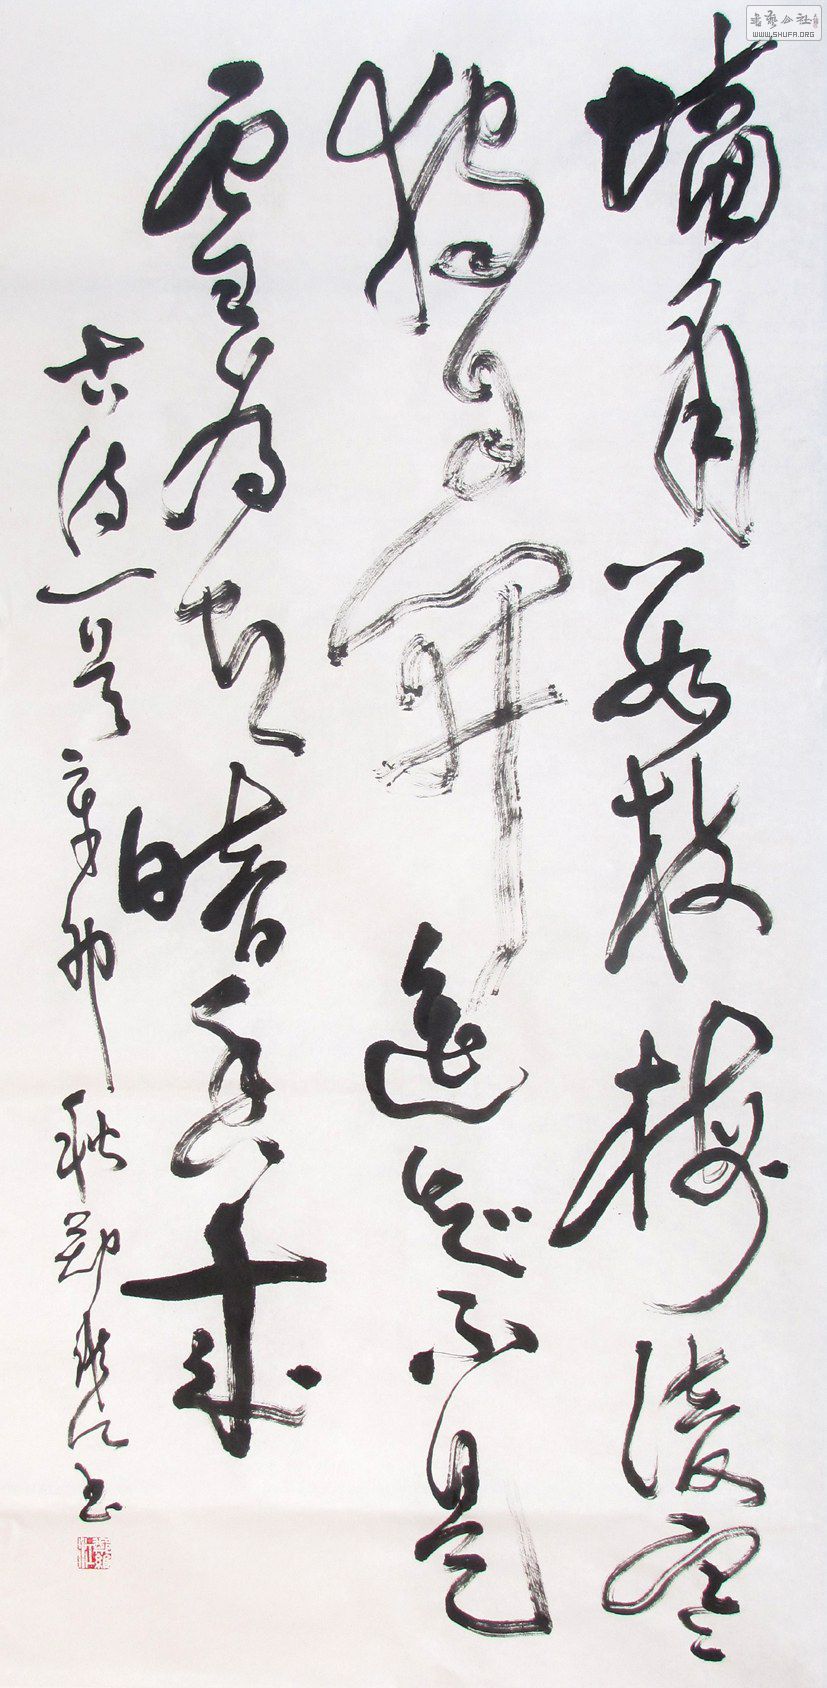 墙角数枝梅凌寒
独自开遥知不是
雪为有暗香来
古诗一首辛卯秋郑
书
书艺公社
WWW.SHUFA.ORG